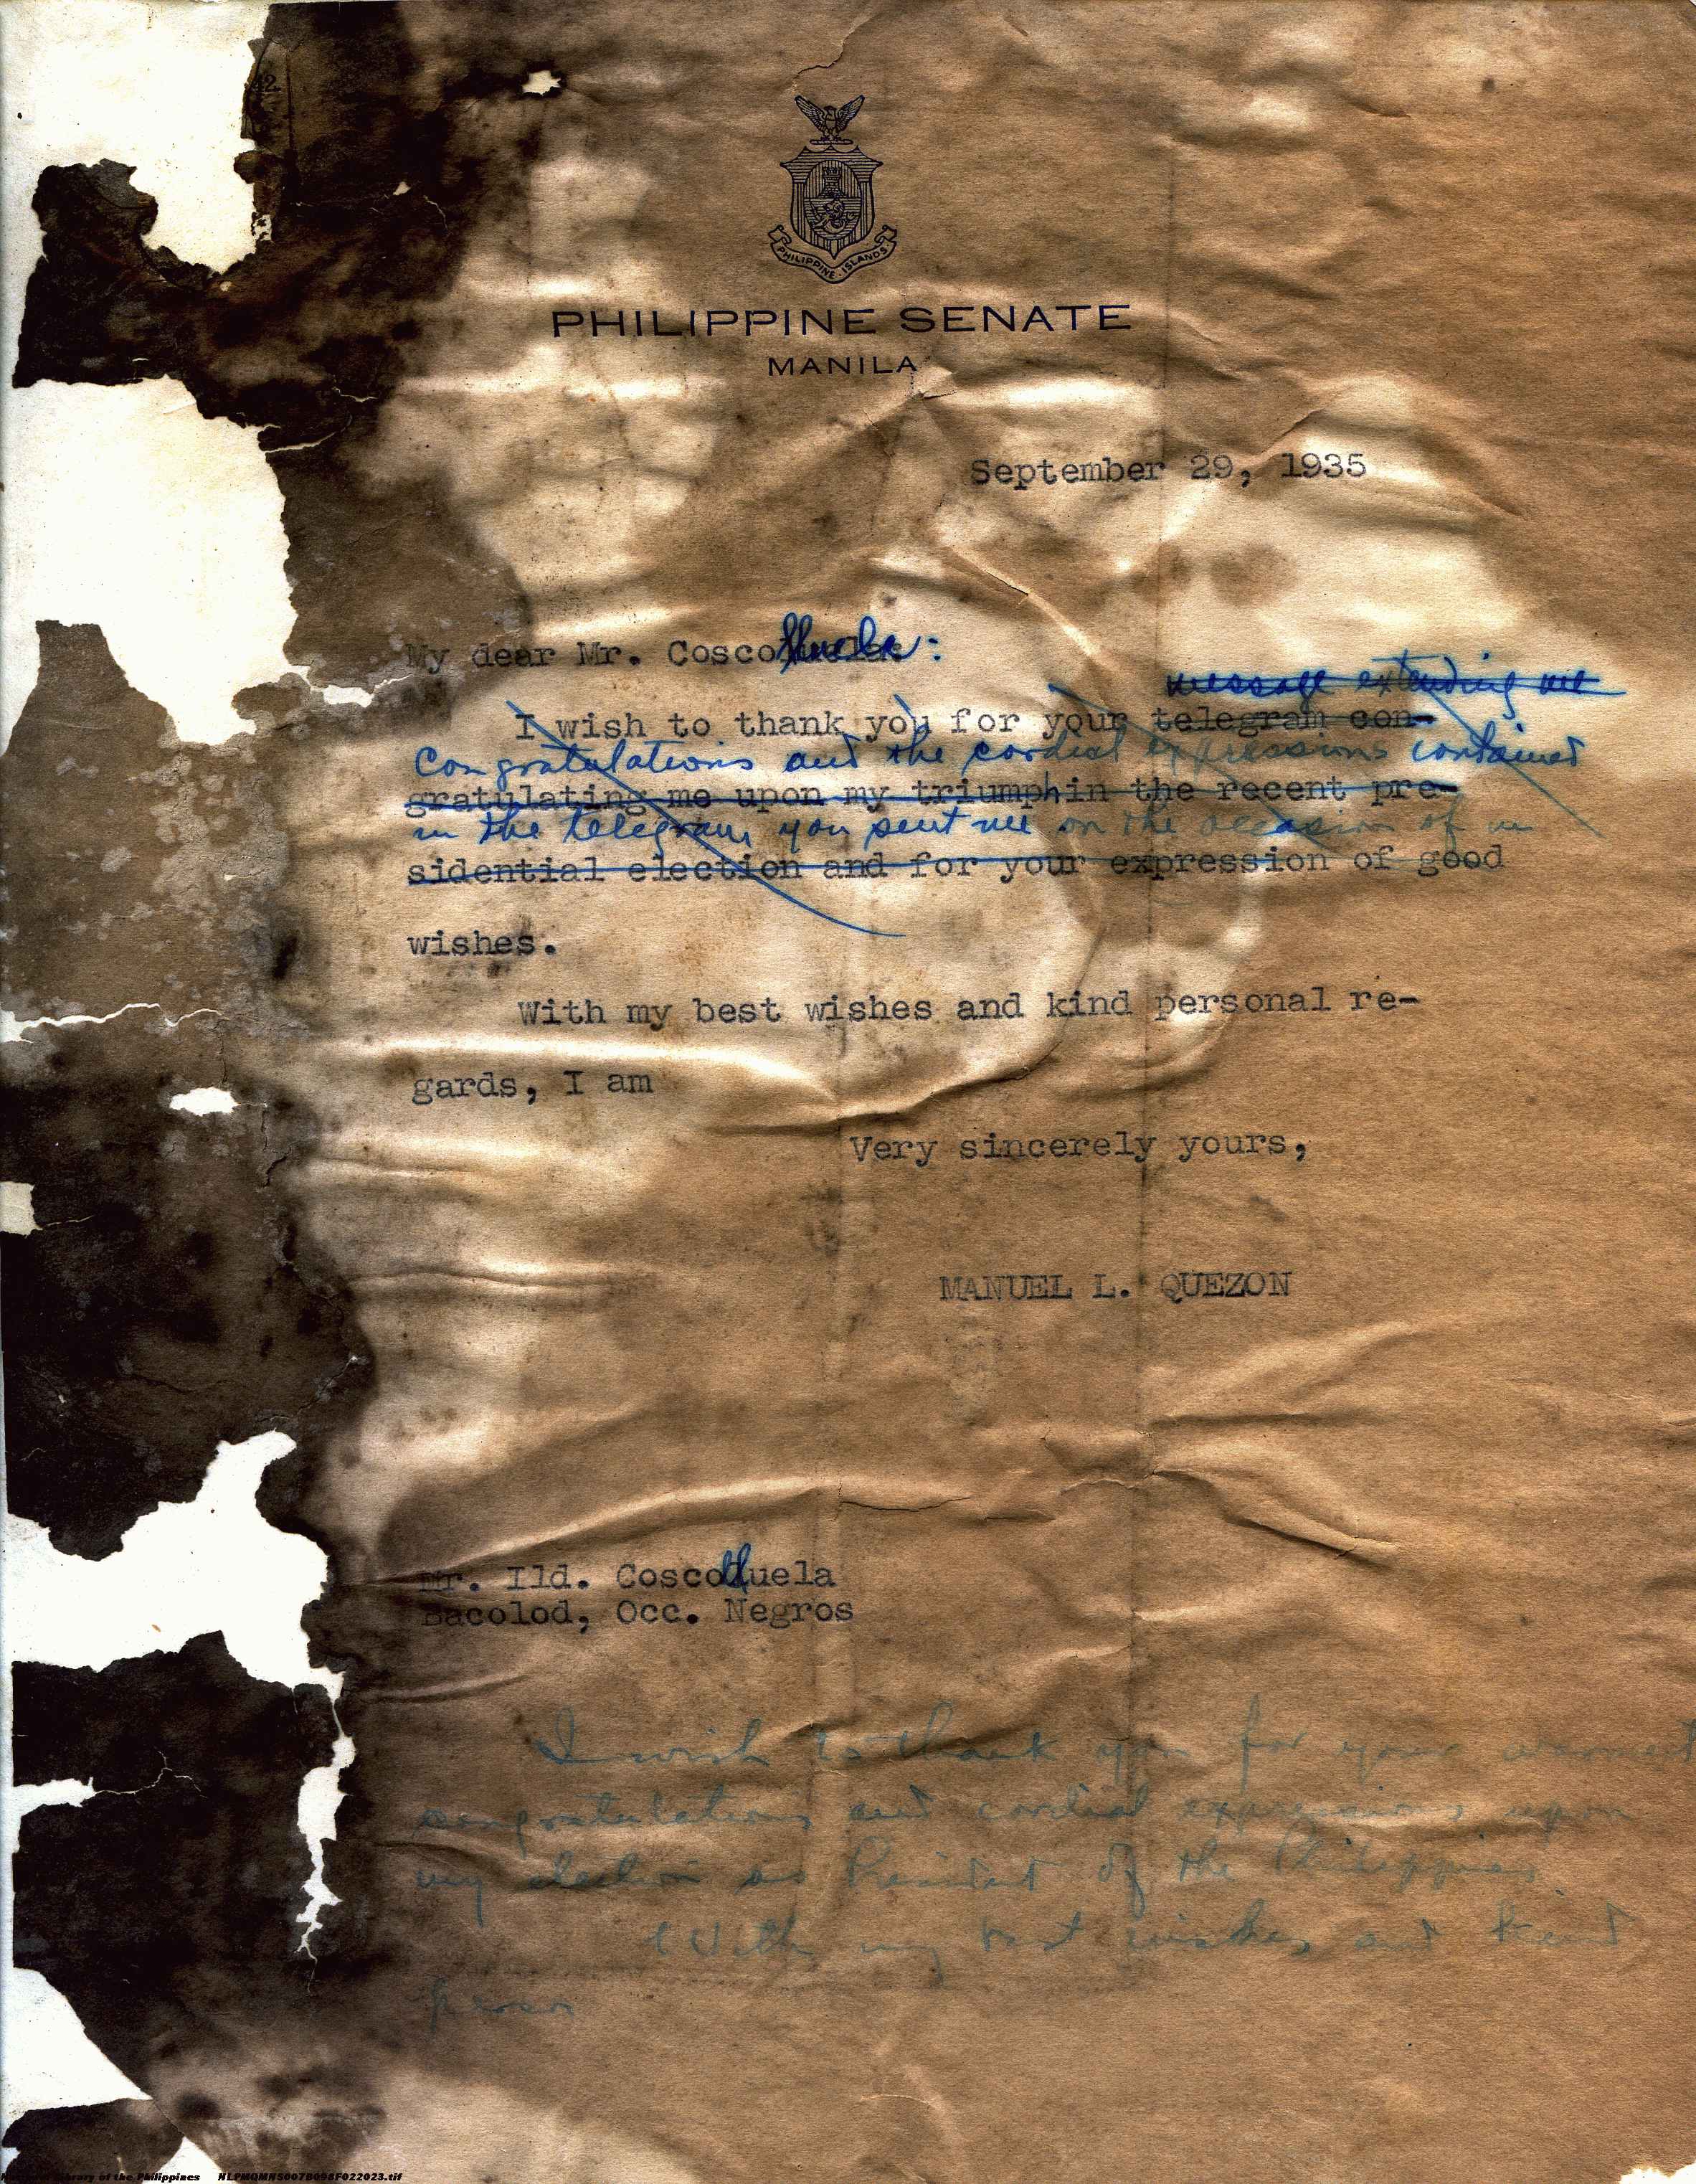 42
PHILIPPINE ISLANDS
PHILIPPINE SENATE
MANILA
September 29, 1935
My dear Mr. Coscolluela:
message extending me
I wish to thank you for your telegram con-
Congratulations and the cordial expressions contained
gratulating me upon my triumph in the recent pre-
in the telegram you sent me on the occasion of m
sidential election and for your expression of good
wishes.
With my best wishes and kind personal re-
gards, I am
Very sincerely yours,
MANUEL L. QUEZON
Mr. Ild. Coscolluela
Bacolod, Occ. Negros
I wish to thank you for your warmest
congratulations and cordial expressions upon
my election as President of the Philippines
With my best wishes and kind
person
Library of the Philippines NLPMQMNS007B098F022023.tif